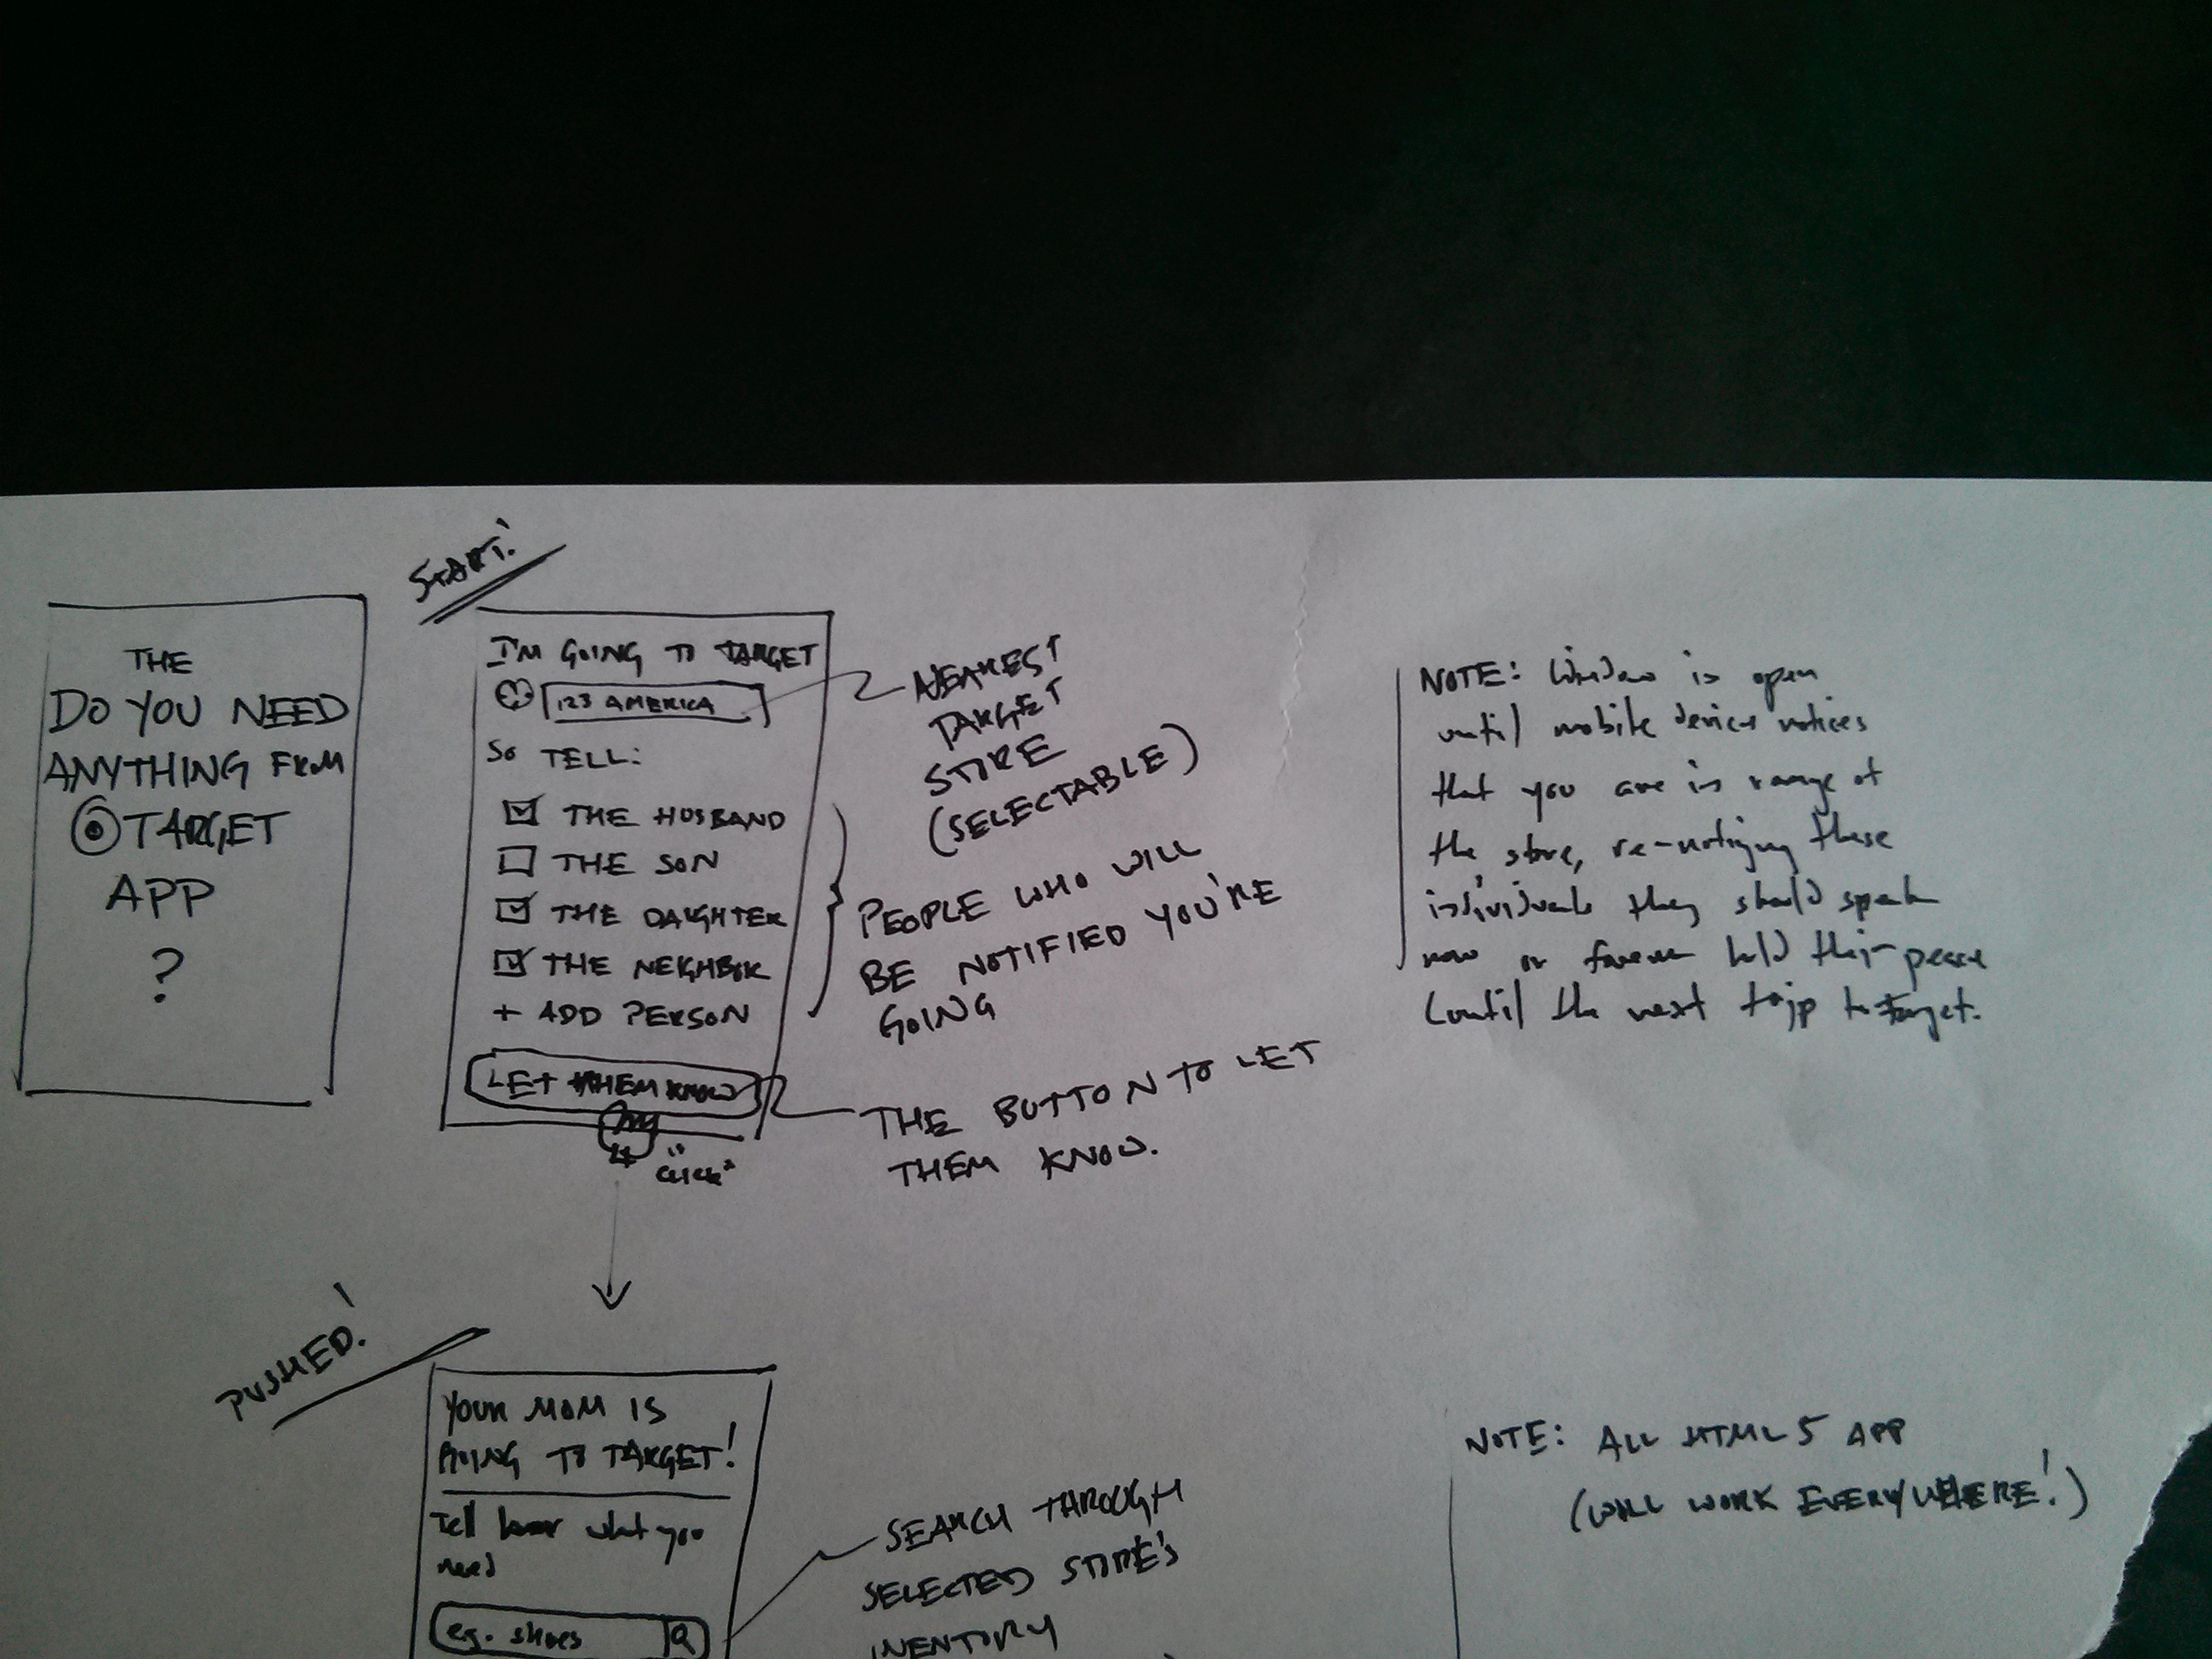 THE
DO YOU NEED
ANYTHING FROM
TARGET
APP
?
START!
I'M GOING TO TARGET
123 AMERICA
SO TELL:
THE HUSBAND
THE SON
THE DAUGHTER
THE NEIGHBOR
+ ADD PERSON
LET THEM KNOW
"CLICK"
NEAREST
TARGET
STORE
(SELECTABLE)
PEOPLE WHO WILL
BE NOTIFIED YOU'RE
GOING
THE BUTTON TO LET
THEM KNOW.
NOTE: Window is open
until mobile device notices
that you are in range of
the store, re-notifying these
individuals they should speak
now or forever hold their peace
(until the next trip to Target.
PUSHED!
YOUR MOM IS
GOING TO TARGET!
Tell her what you
need
eg. shoes
SEARCH THROUGH
SELECTED STORE'S
INENTORY
NOTE: ALL HTML5 APP
(WILL WORK EVERYWHERE!)